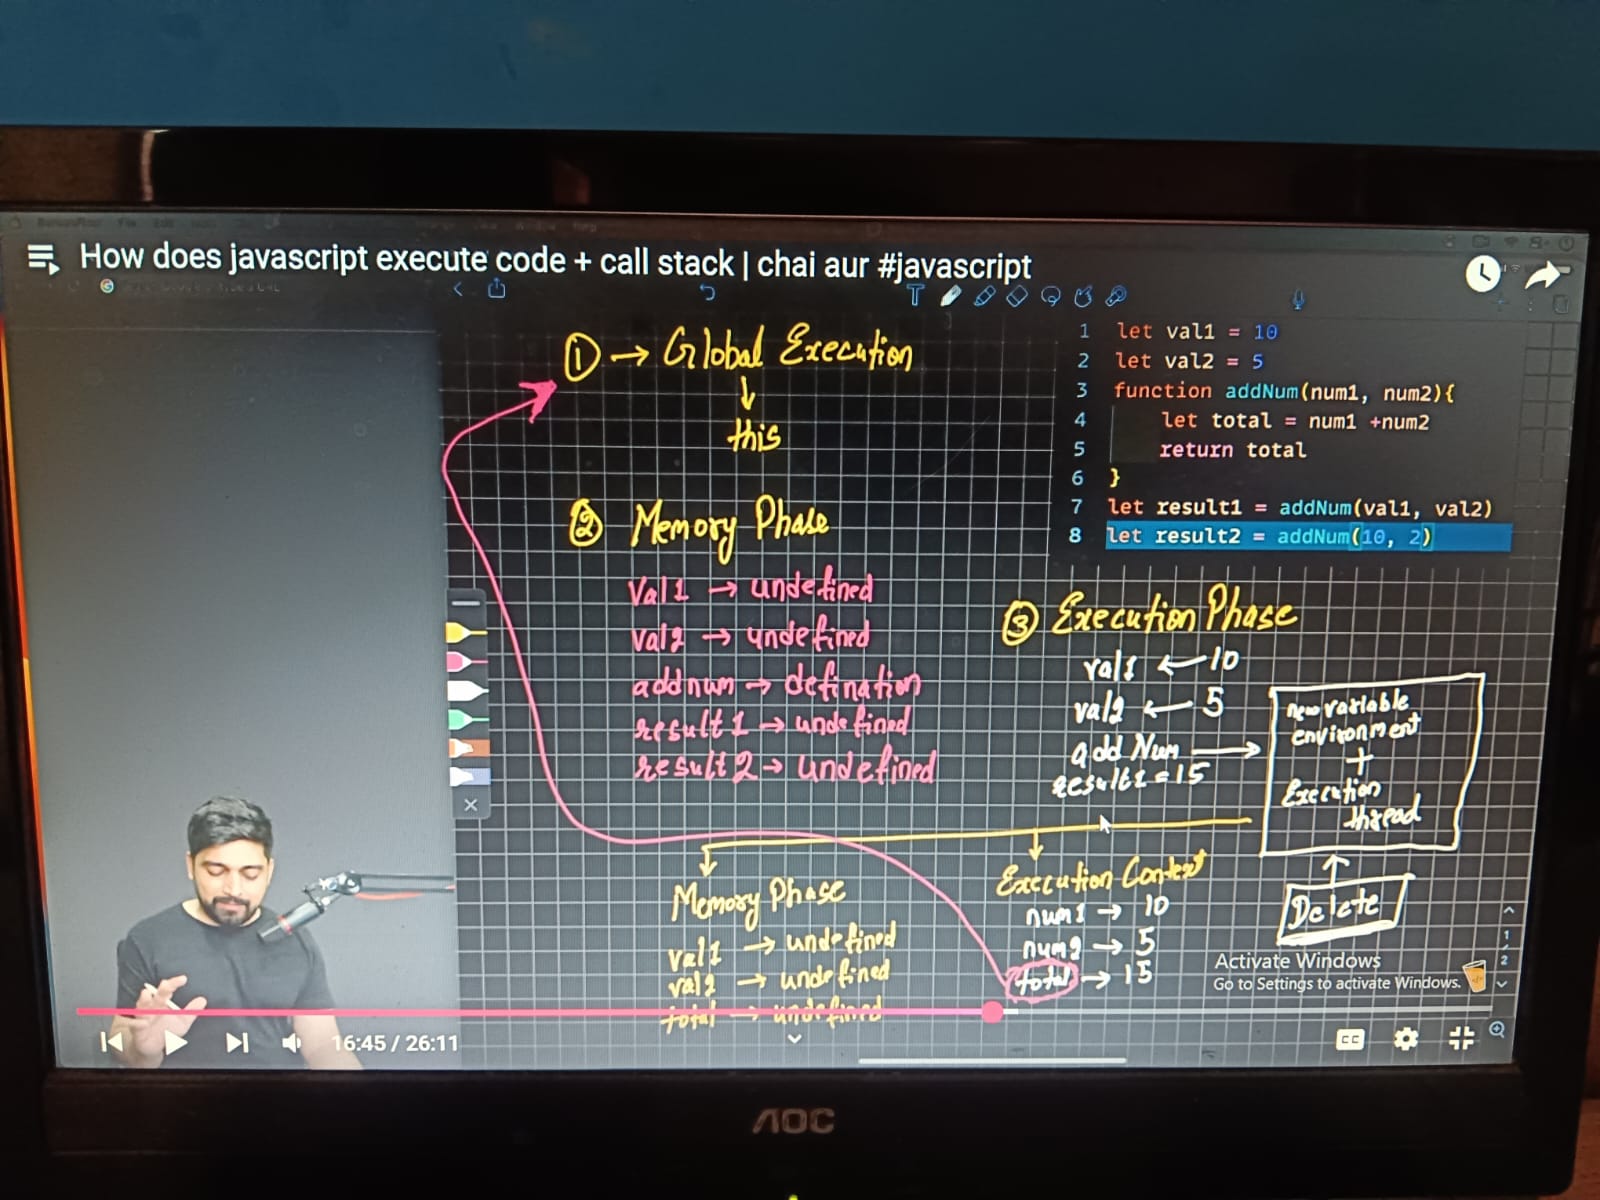 How does javascript execute code + call stack | chai aur #javascript
① → Global Execution
↓
this
② Memory Phase
Val1 → undefined
val2 → undefined
addnum → defination
result1 → undefined
result2 → undefined
1 let val1 = 10
2 let val2 = 5
3 function addNum(num1, num2){
4 let total = num1 +num2
5 return total
6 }
7 let result1 = addNum(val1, val2)
8 let result2 = addNum(10, 2)
③ Execution Phase
val1 ← 10
val2 ← 5
add Num →
result1 = 15
new variable
environment
+
Execution
thread
↑
Delete
Memory Phase
val1 → undefined
val2 → undefined
total → undefined
Execution Context
num1 → 10
num2 → 5
total → 15
Activate Windows
Go to Settings to activate Windows.
1
2
16:45 / 26:11
CC
AOC